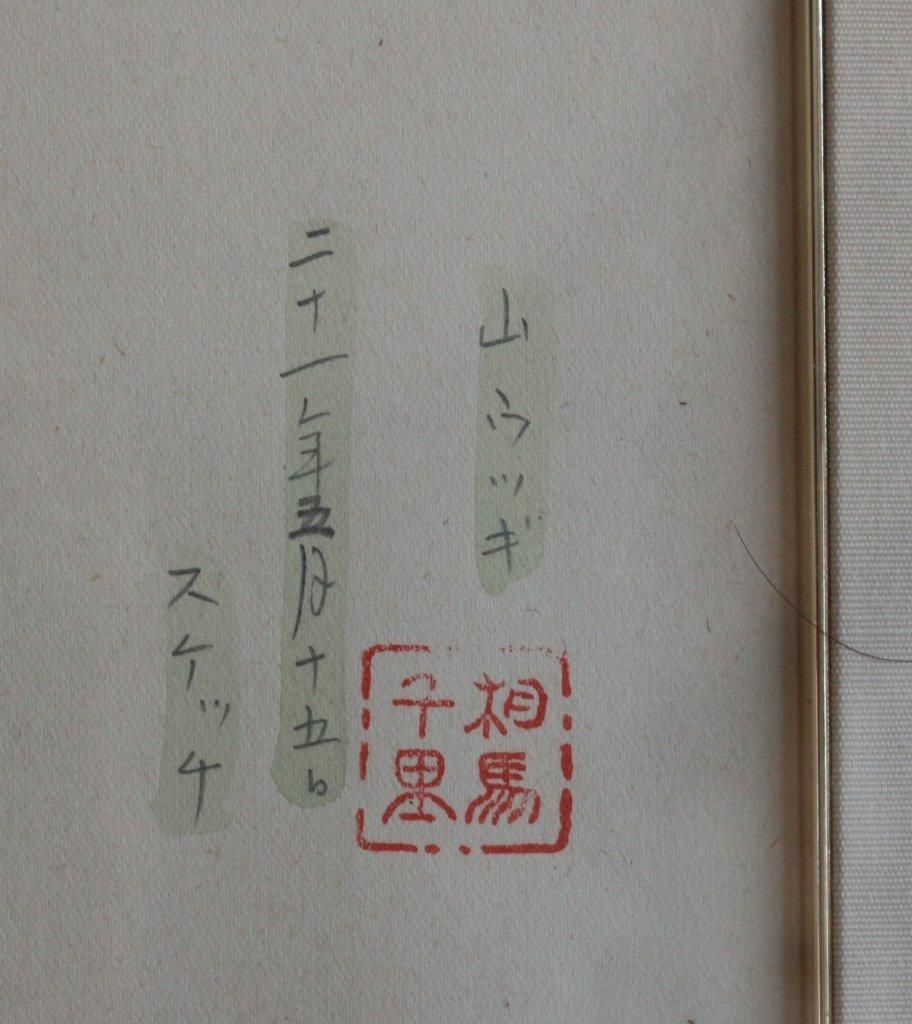 山ウツギ
二十一年五月十五日
スケッチ
相馬
千里